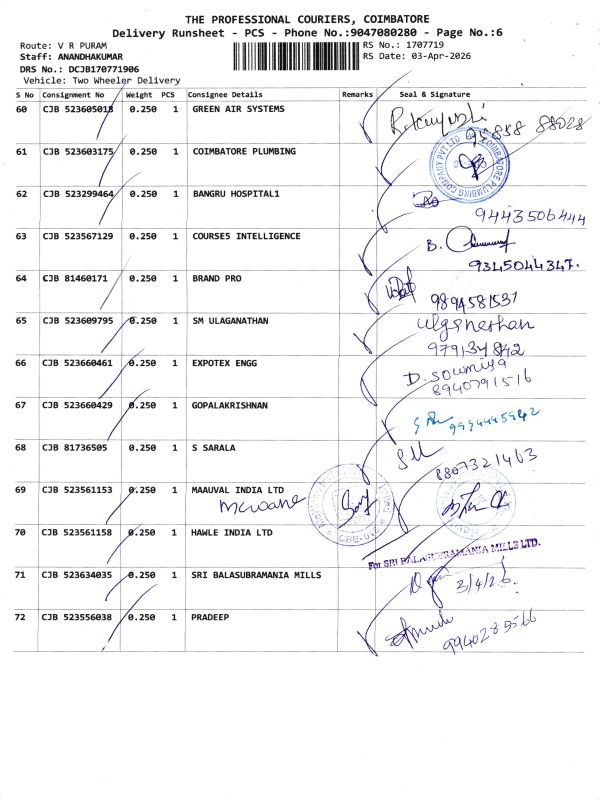 THE PROFESSIONAL COURIERS, COIMBATORE
Delivery Runsheet - PCS - Phone No.:9047080280 - Page No.:6
Route: V R PURAM
RS No.: 1707719
Staff: ANANDHAKUMAR
RS Date: 03-Apr-2026
DRS No.: DCJB170771906
Vehicle: Two Wheeler Delivery
S No Consignment No Weight PCS Consignee Details Remarks Seal & Signature
60 CJB 523605018 0.250 1 GREEN AIR SYSTEMS
95858 88028
61 CJB 523603175 0.250 1 COIMBATORE PLUMBING
COIMBATORE PLUMBING COMPANY PVT LTD
62 CJB 523299464 0.250 1 BANGRU HOSPITAL1
9443506444
63 CJB 523567129 0.250 1 COURSE5 INTELLIGENCE
B.
9345044347.
64 CJB 81460171 0.250 1 BRAND PRO
9894581537
65 CJB 523609795 0.250 1 SM ULAGANATHAN
66 CJB 523660461 0.250 1 EXPOTEX ENGG
D. Soumiya
8940791516
67 CJB 523660429 0.250 1 GOPALAKRISHNAN
9994445942
68 CJB 81736505 0.250 1 S SARALA
8807321463
69 CJB 523561153 0.250 1 MAAUVAL INDIA LTD
70 CJB 523561158 0.250 1 HAWLE INDIA LTD
For SRI BALASUBRAMANIA MILLS LTD.
71 CJB 523634035 0.250 1 SRI BALASUBRAMANIA MILLS
3/4/26.
72 CJB 523556038 0.250 1 PRADEEP